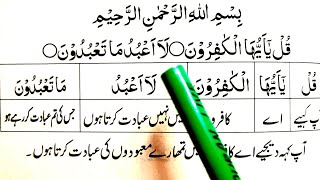 بِسْمِ اللّٰهِ الرَّحْمٰنِ الرَّحِيْمِ
قُلْ يٰٓاَيُّهَا الْكٰفِرُوْنَ○ لَآ اَعْبُدُ مَا تَعْبُدُوْنَ○
قُلْ يٰٓاَيُّهَا الْكٰفِرُوْنَ لَآ اَعْبُدُ مَا تَعْبُدُوْنَ
آپ کہیے اے کافرو نہیں عبادت کرتا ہوں جس کی تم عبادت کر رہے ہو
آپ کہہ دیجیے اے کافرو میں تمھارے معبودوں کی عبادت نہیں کرتا ہوں۔